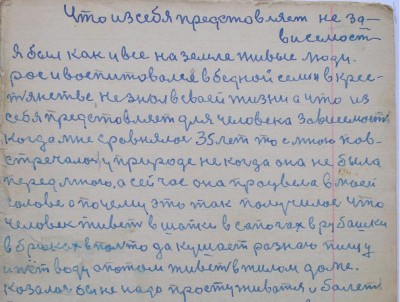 Что из себя представляет не за-
висемость
Я был как и все на земле живые люди.
рос и воспитовался в бедной семьи в крес-
тянстве, не знол в своей жизни а что из
себя представляет для человека зависемость
когда мне сравнялос 35 лет то с мною пов-
стречалос у природе не когда она не была
передмною, а сейчас она процвела в моей
голове о почему это так получилос что
человек живет в шапки в сапогах в рубашки
в брюках в польто да кушает разною пищу
и пет воду а потом живет в жилом доме.
Казалос бы не надо простуживатя и балеть